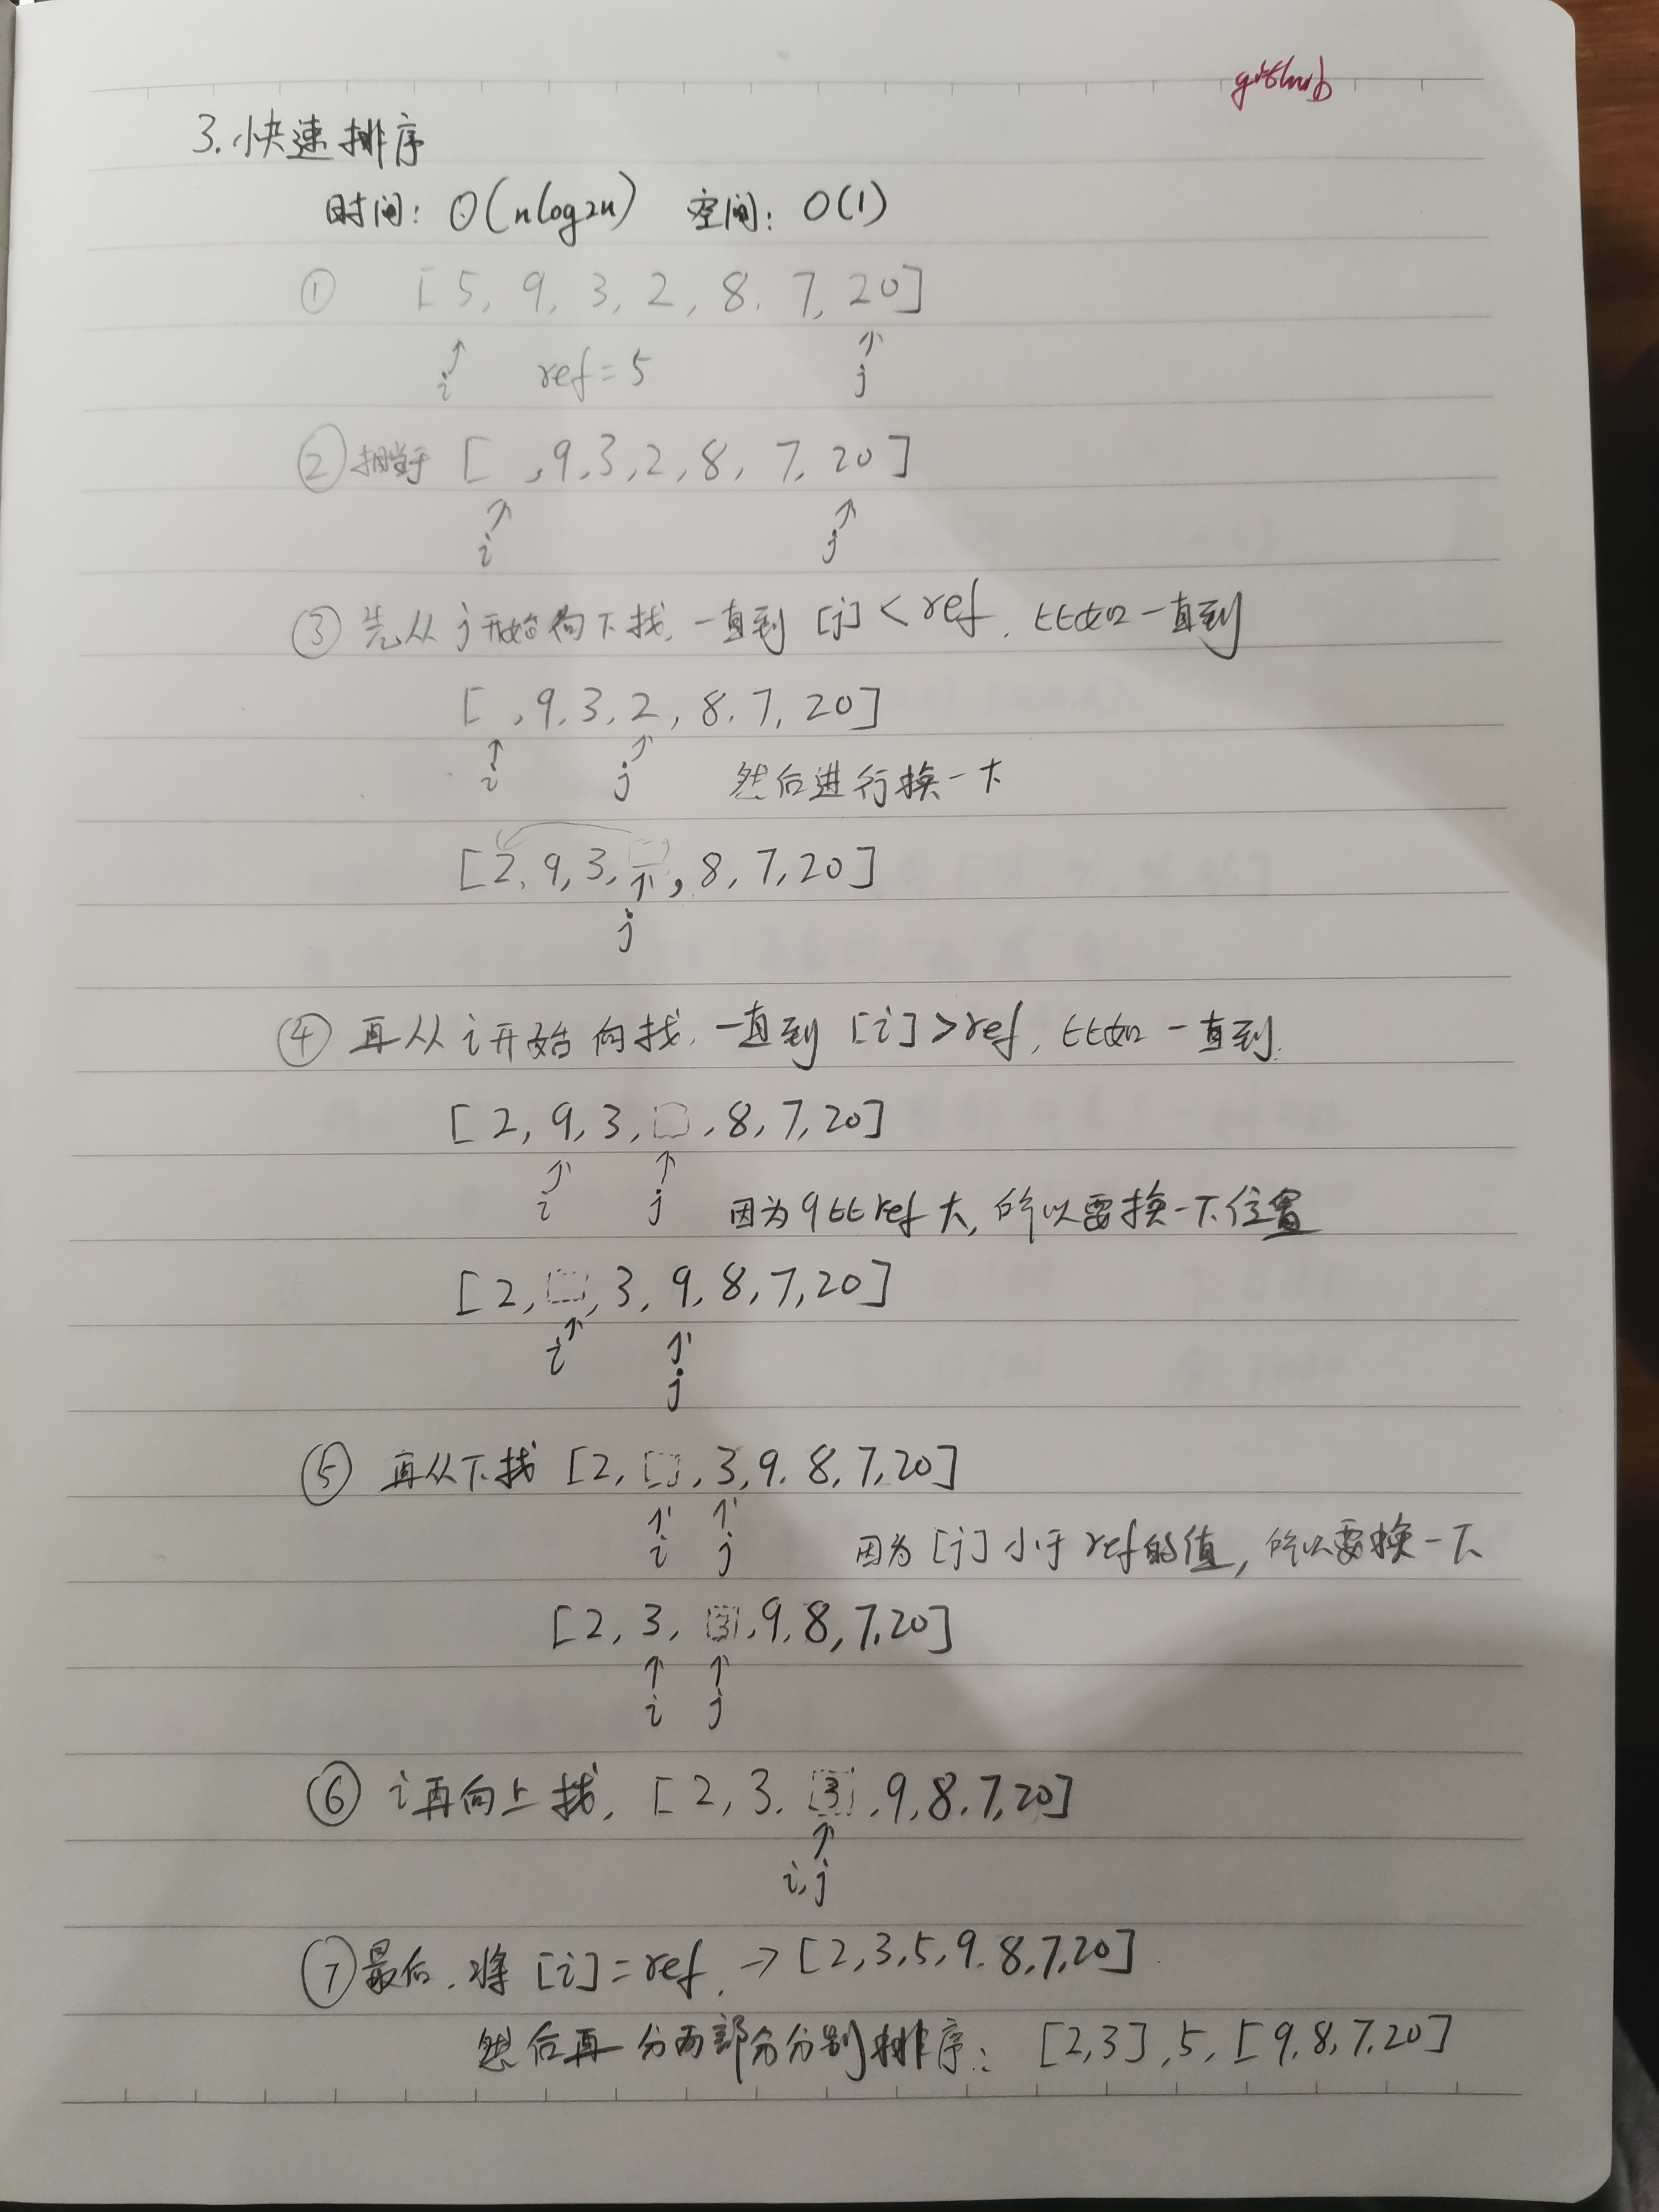 github
3. 快速排序
时间: O(nlog2n) 空间: O(1)
① [5, 9, 3, 2, 8, 7, 20]
↑ i ref=5 ↑ j
② 相当于 [ , 9, 3, 2, 8, 7, 20]
↑ i ↑ j
③ 先从j开始向下找, 一直到 [j] < ref, 比如一直到
[ , 9, 3, 2, 8, 7, 20]
↑ i ↑ j 然后进行换一下
[2, 9, 3, , 8, 7, 20]
↑ j
④ 再从i开始向找, 一直到 [i] > ref, 比如一直到
[2, 9, 3, , 8, 7, 20]
↑ i ↑ j 因为9比ref大, 所以要换一下位置
[2, , 3, 9, 8, 7, 20]
↑ i ↑ j
⑤ 再从下找 [2, , 3, 9, 8, 7, 20]
↑ i ↑ j 因为[j]小于ref的值, 所以要换一下
[2, 3, 3, 9, 8, 7, 20]
↑ i ↑ j
⑥ i再向上找, [2, 3, 3, 9, 8, 7, 20]
↑ i,j
⑦ 最后, 将[i]=ref, → [2, 3, 5, 9, 8, 7, 20]
然后再分两部分分别排序: [2,3], 5, [9, 8, 7, 20]